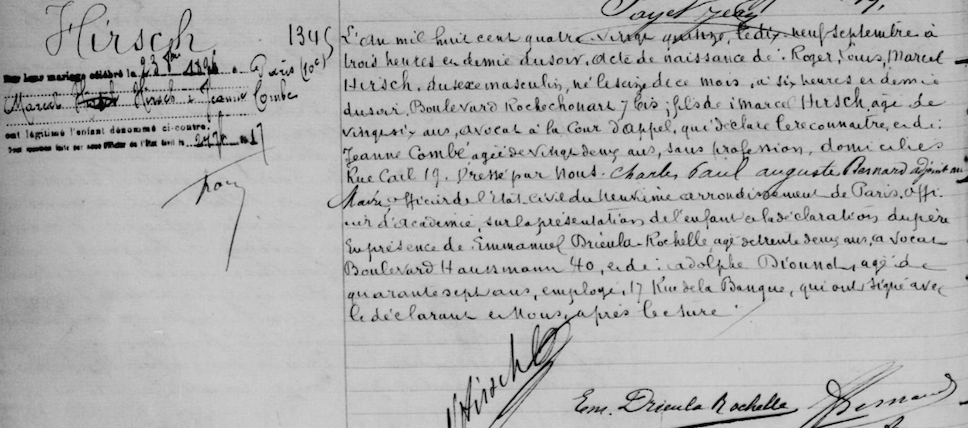 Hirsch
1345
Par leur mariage célébré le 23 1896 à Paris (10e)
Marcel Hirsch & Jeanne Combé
ont légitimé l'enfant dénommé ci-contre.
L'an mil huit cent quatre vingt quinze, le dix neuf septembre à
trois heures et demie du soir, acte de naissance de: Roger, Louis, Marcel
Hirsch, du sexe masculin, né le seize de ce mois, à six heures et demie
du soir, Boulevard Rochechouart 7 bis; fils de: Marcel Hirsch, agé de
vingt six ans, avocat à la Cour d'appel, qui déclare le reconnaitre, et de:
Jeanne Combé agée de vingt deux ans, sans profession, domiciliés
Rue Cail 19. Dressé par Nous: Charles Paul Auguste Bernard adjoint au
Maire, officier de l'Etat civil du neuvième arrondissement de Paris, offi-
cier d'académie, sur la présentation de l'enfant et la déclaration du père
En présence de Emmanuel Drieula-Rochelle agé de trente deux ans, avocat
Boulevard Haussmann 40, et de: adolphe Diounot, agé de
quarante sept ans, employé, 17 Rue de la Banque, qui ont signé avec
le déclarant et Nous, après lecture:
Hirsch
Em. Drieula Rochelle
Bernard